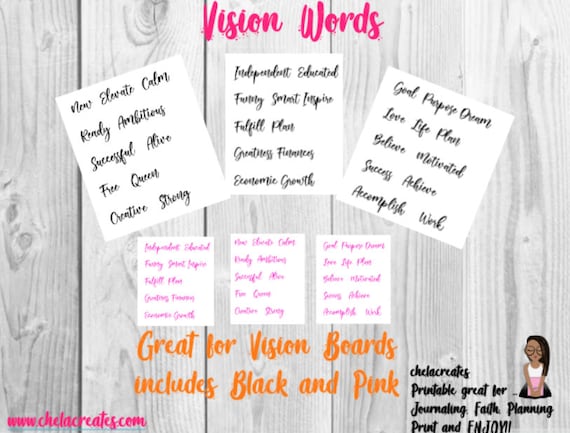 Vision Words
New Elevate Calm
Ready Ambitious
Successful Alive
Free Queen
Creative Strong
Independent Educated
Funny Smart Inspire
Fulfill Plan
Greatness Finances
Economic Growth
Goal Purpose Dream
Love Life Plan
Believe Motivated
Success Achieve
Accomplish Work
Independent Educated
Funny Smart Inspire
Fulfill Plan
Greatness Finances
Economic Growth
New Elevate Calm
Ready Ambitious
Successful Alive
Free Queen
Creative Strong
Goal Purpose Dream
Love Life Plan
Believe Motivated
Success Achieve
Accomplish Work
Great for Vision Boards
includes Black and Pink
www.chelacreates.com
chelacreates
Printable great for ...
Journaling, Faith, Planning
Print and ENJOY!